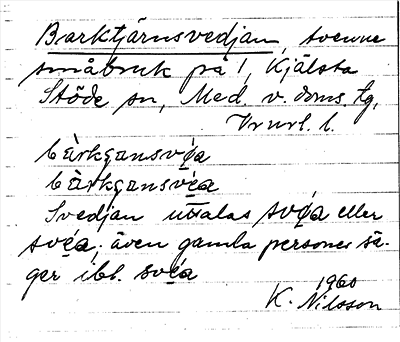 Barktjärnsvedjan, tvenne
småbruk på 1, Kjälsta
Stöde sn, Med. v. doms. tg,
l.
bàrkȩansvéa
bàrkȩansvéa
Svedjan uttalas svéa eller
svéa; även gamla personer sä-
ger ibl. svéa
1960
K. Nilsson